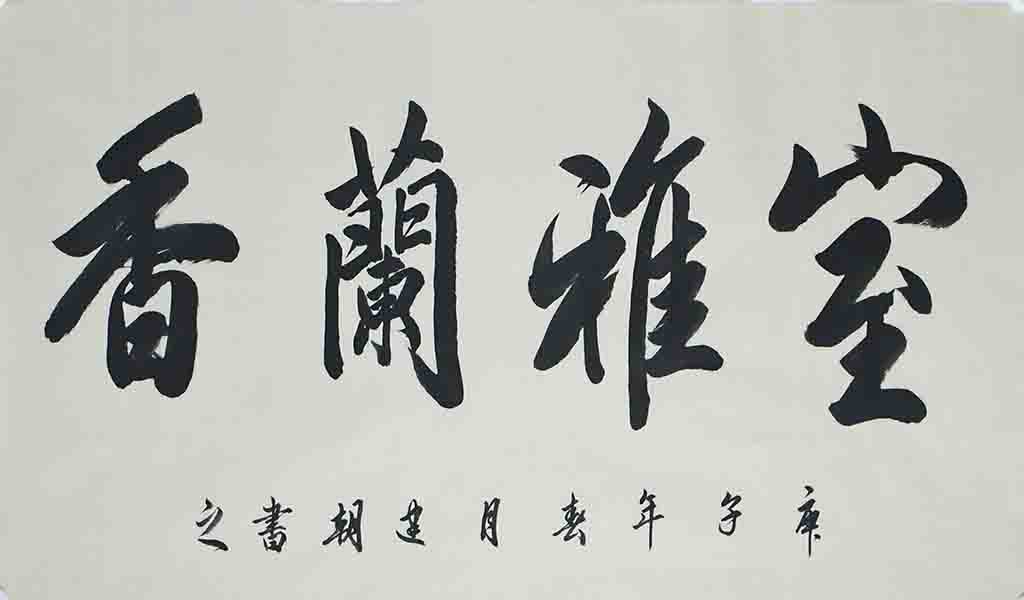 室雅蘭香
庚子年春月建朝書之